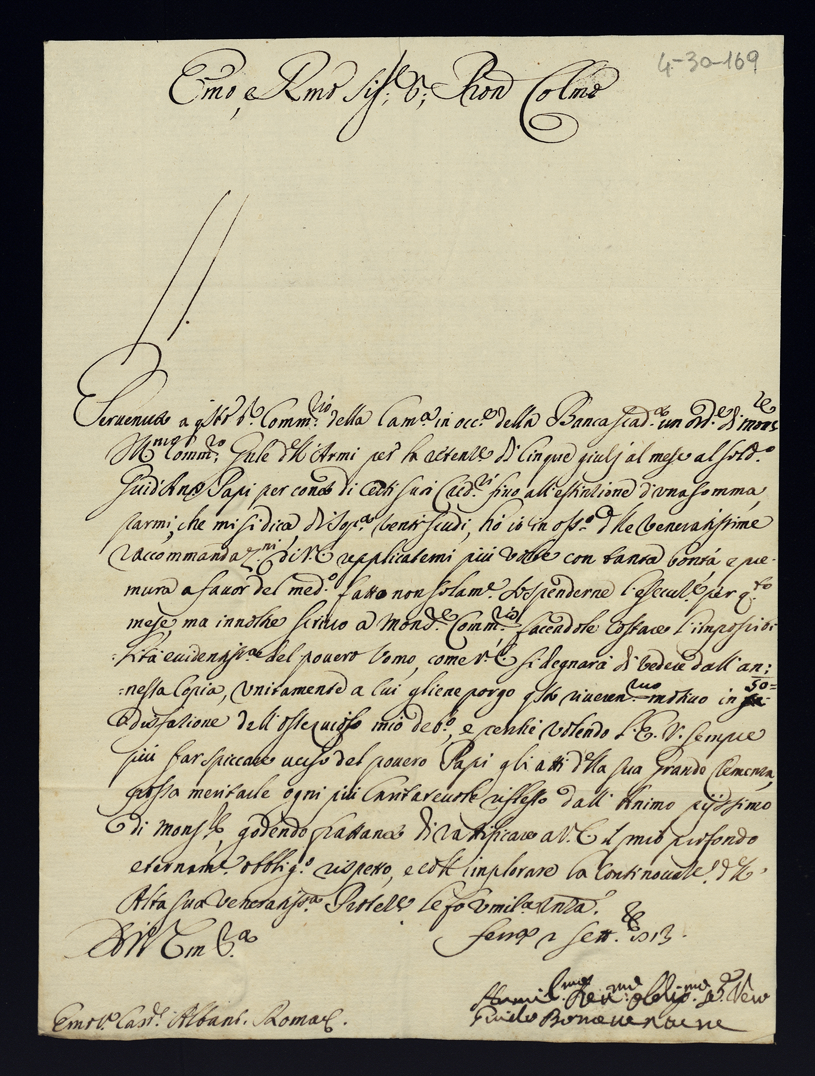 4-30-169
Em̃o, e Rmo Sig.r, e Pron Colmo
Pervenuto a q.sto S.r Comm.rio della Cam.a in occ.e della Banca scad.a un ord.e di mons.re
Comm.rio Gn̄le dell'Armi per la ritenz.e di cinque giulj al mese al sold.o
Guid'Ant.o Papi per conto di certi suoi Cred.ri fino all'estinzione d'una somma,
parmi, che mi si dica, di sop.a venti scudi, hò io in oss.o d.lle veneratissime
raccommandaz.ni di V.E. replicatemi più volte con tanta bontà e pre-
mura a favor del med.o fatto non solam.e sospenderne l'esecuz.e per q.sto
mese, ma inoltre scrivo a Mons.re Comm.rio, facendole costare l'impossibi-
lità evidentiss.a del povero Uomo, come V.E. si degnarà di vedere dall'an:
:nessa Copia, unitamente a cui gliene porgo q.sto riveren.mo motivo in so=
disfazione dell'ossequioso mio deb.o, e perchè volendo l'E.V. sempre
più far spiccare verso del povero Papi gli atti della sua grande Clemenza,
possa meritarle ogni più caritatevole riflesso dall'Animo pijssimo
di Mons.re, godendo frattanto di ratificare a V.E. il mio profondo
eternam.e obblig.o rispetto, e coll'implorare la continovaz.e d.lla
Alta sua veneratiss.a Protez.e le fò umil.a Inchi.o
Di V.ra Em.za
Ferrara 2 Sett.re 1713.
Umil.mo Dev.mo Oblig.mo Se.re Vero
Guido Bonaventure
Em̃o S.r Card.l Albani. Roma.